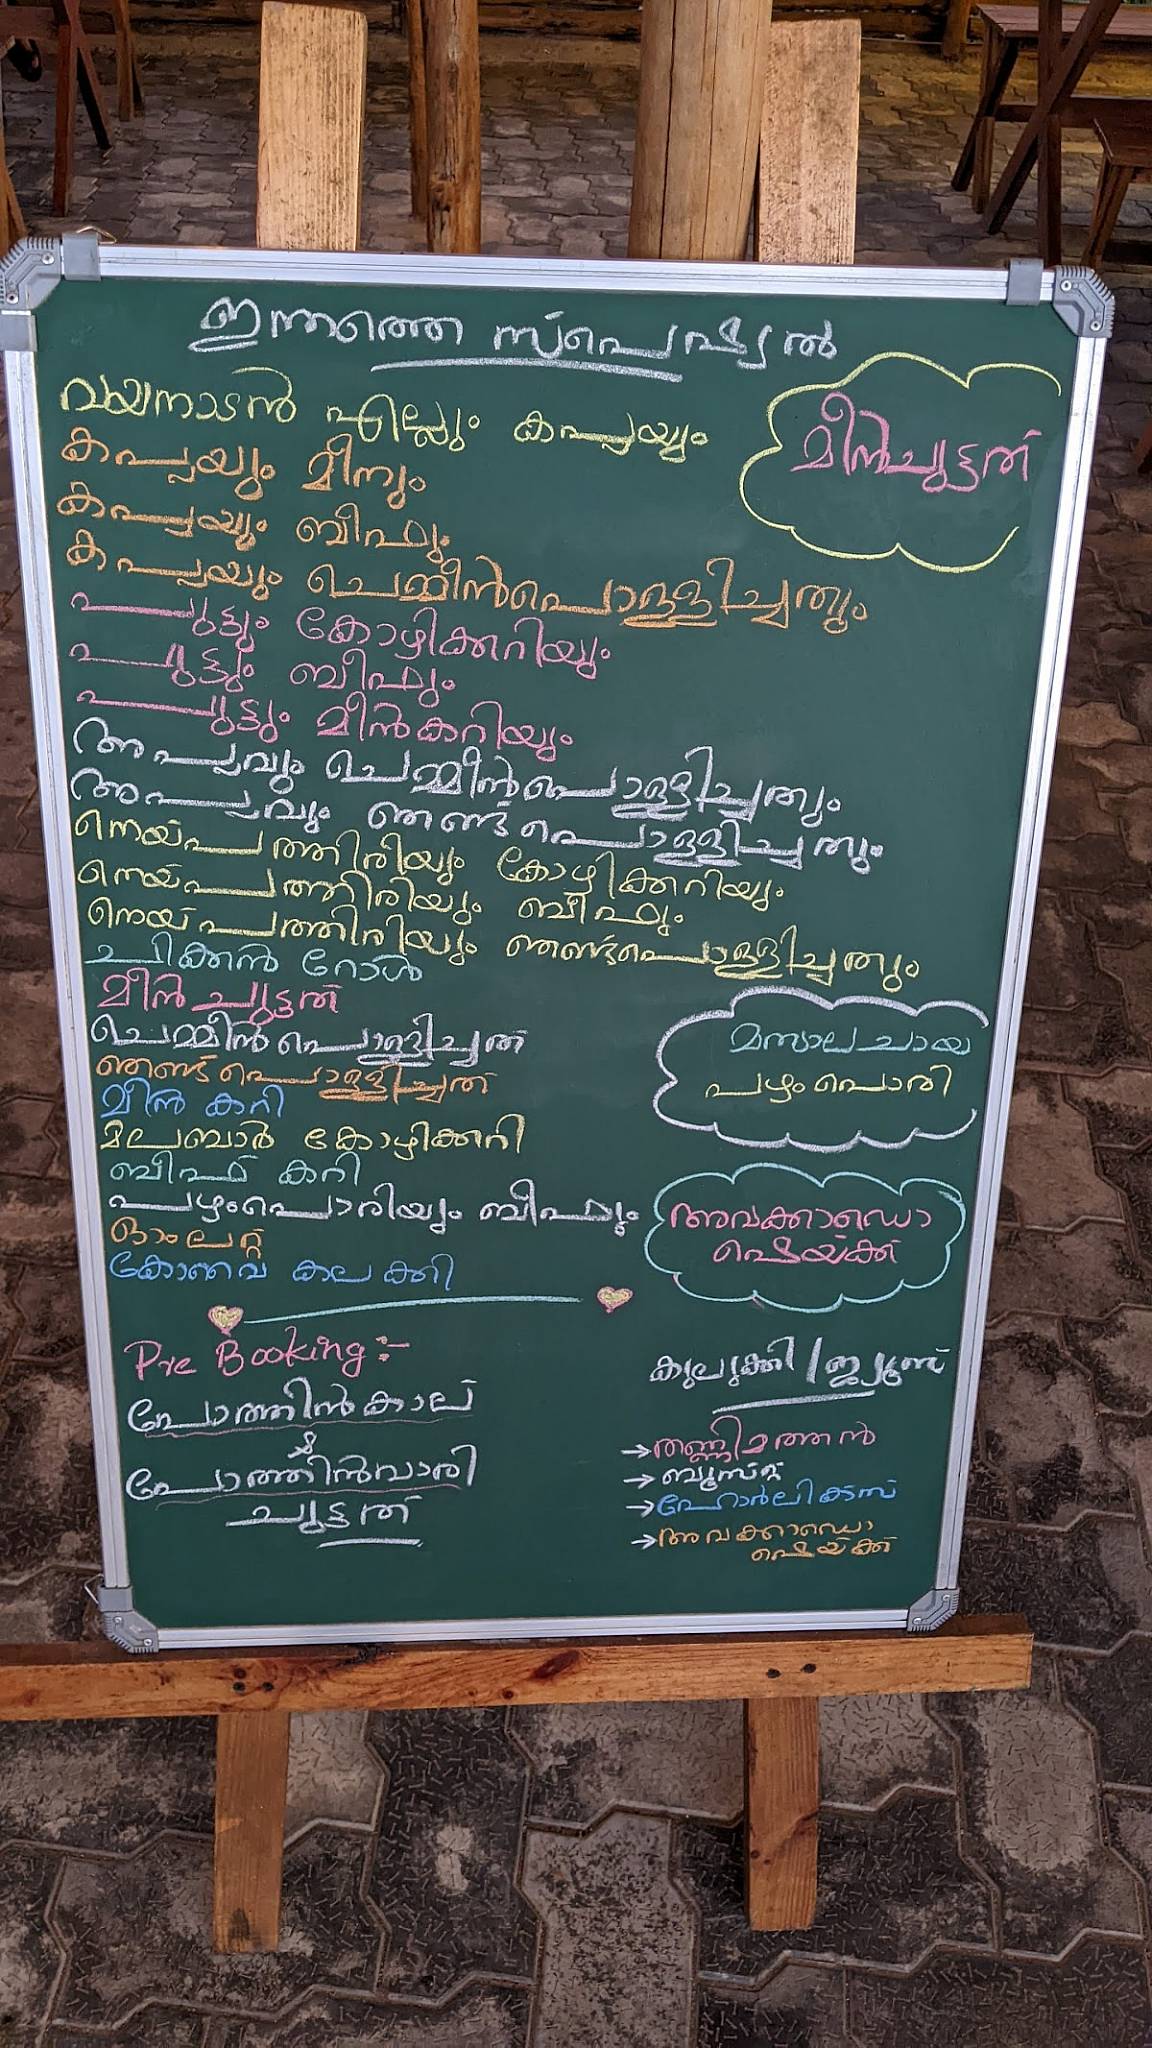 ഇന്നത്തെ സ്പെഷ്യൽ
വയനാടൻ എല്ലും കപ്പയും
കപ്പയും മീനും
കപ്പയും ബീഫും
കപ്പയും ചെമ്മീൻപൊള്ളിച്ചതും
പുട്ടും കോഴിക്കറിയും
പുട്ടും ബീഫും
പുട്ടും മീൻകറിയും
അപ്പവും ചെമ്മീൻപൊള്ളിച്ചതും
അപ്പവും ഞണ്ട്പൊള്ളിച്ചതും
നെയ്പത്തിരിയും കോഴിക്കറിയും
നെയ്പത്തിരിയും ബീഫും
നെയ്പത്തിരിയും ഞണ്ട്പൊള്ളിച്ചതും
ചിക്കൻ റോൾ
മീൻ ചുട്ടത്
ചെമ്മീൻ പൊള്ളിച്ചത്
ഞണ്ട് പൊള്ളിച്ചത്
മീൻ കറി
മലബാർ കോഴിക്കറി
ബീഫ് കറി
പഴംപൊരിയും ബീഫും
ഓംലറ്റ്
കലക്കി
മീൻചുട്ടത്
മസാല ചായ
പഴം പൊരി
അവക്കാഡൊ
ഷെയ്ക്ക്
Pre Booking:-
പോത്തിൻകാല്
&
പോത്തിൻവാരി
ചുട്ടത്
കുലുക്കി / ജ്യൂസ്
→ തണ്ണിമത്തൻ
→ ബൂസ്റ്റ്
→ ഹോർലിക്ടസ്
→ അവക്കാഡൊ
ഷെയ്ക്ക്